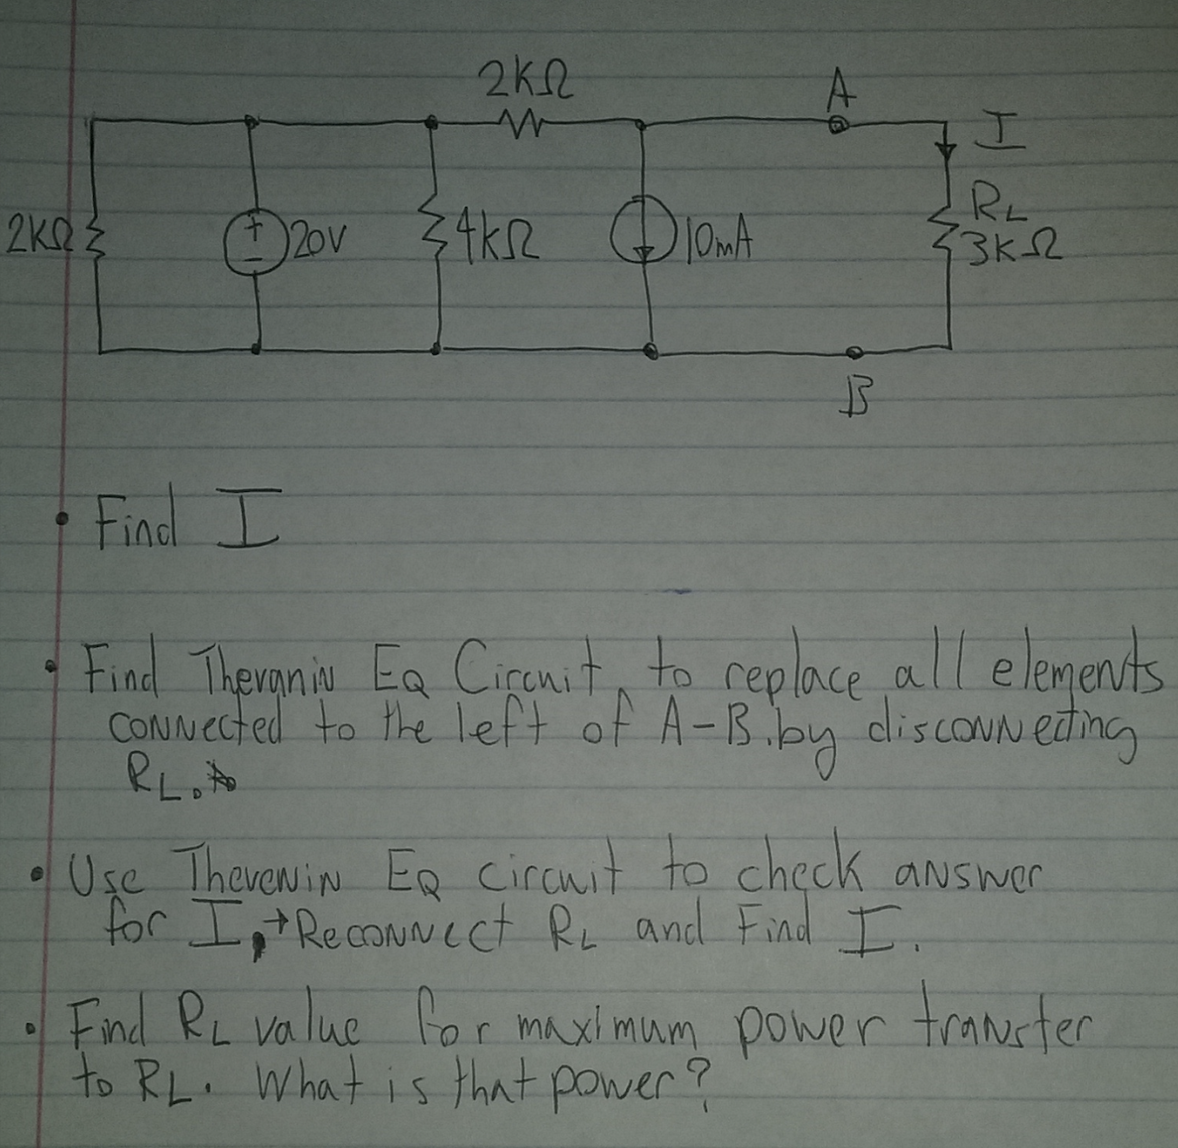 2KΩ
A
I
2KΩ
+
-
20V
4kΩ
10mA
RL
3KΩ
B
• Find I
• Find Thevanin EQ Circuit, to replace all elements
connected to the left of A-B. by disconnecting
RL.
• Use Thevenin EQ circuit to check answer
for I, → Reconnect RL and Find I.
• Find RL value for maximum power transfer
to RL. What is that power?